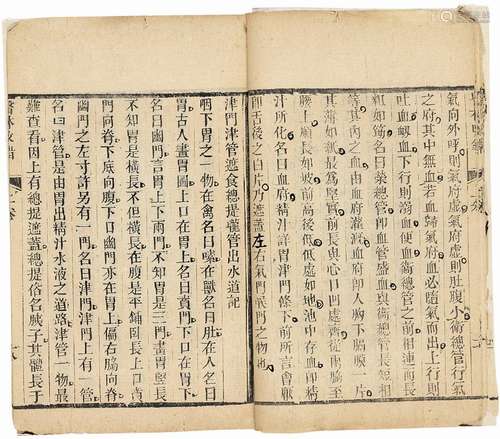 氣向外呼則氣府虛府虛則肚腹小衛總管行氣
之府其中無血若血歸氣府血必隨氣而出上行則
吐血衄血下行則溺血便血衛總管之前相連而長
粗如筯名曰榮總管即血管盛血與衛總管長
等其內之血由血府灌溉血府即人胸下膈膜一片
其薄如紙最為堅實前長與心口凹處齊從兩脇至
腰上順長如坡前高後低低處如池池中存血即精
汁所化名曰血府精汁詳胃津門條下前所言會厭
即舌後之白片乃遮蓋左右氣門喉門之物也
津門津管遮食總提瓏管出水道記
咽下胃之一物在禽名曰嗉在獸名曰肚在人名曰
胃古人畫胃圖上口在胃上名曰賁門下口在胃下
名曰幽門言胃上下兩門不知胃是三門畫胃竪長
不知胃是橫長不但橫長在腹是平鋪臥長上口賁門
向脊下底向腹下口幽門亦在胃上偏右脇向脊
幽門之左寸許另有一門名曰津門津門上有一管
名曰津管是由胃出精汁水液之道路津管一物最
難查看因上有總提遮蓋總提俗名胰子其體長于
醫林改錯